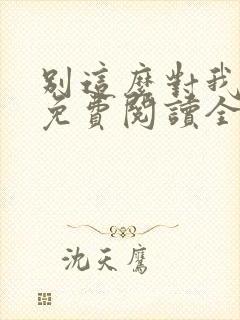 別這麼對我
免費閱讀全
沈天鷹